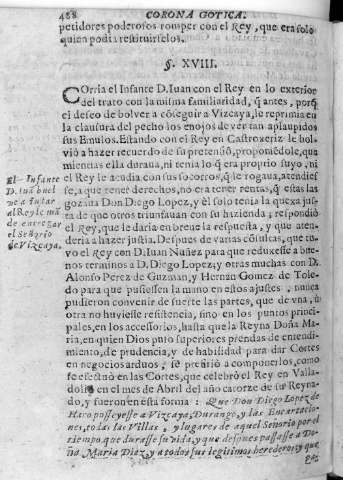 488 CORONA GOTICA.
petidores poderosos romper con el Rey, que era solo
quien podia restituirselos.
§. XVIII.
Corria el Infante D. Iuan con el Rey en lo exterior
del trato con la misma familiaridad, q̃ antes, porq̃
el deseo de bolver a cõseguir a Vizcaya, le reprimia en
la clausura del pecho los enojos de ver tan aplaupidos
sus Emulos. Estando con el Rey en Castroxeriz le bol-
vió a hazer recuerdo de su pretensiõ, proponiẽdole, que
mientras ella duraua, ni tenia lo q̃ era proprio suyo, ni
el Rey le acudia con sus socorros, q̃ le rogaua, atendies-
se, a que tener derechos, no era tener rentas, q̃ estas las
gozaua Don Diego Lopez, y èl solo tenia la quexa jus-
ta de que otros triunfauan con su hazienda; respondiò
el Rey, que le daria en breve la respuesta, y que aten-
deria a hazer justiª. Despues de varias cõsultas, que tu-
vo el Rey con D. Iuan Nuñez para que reduxesse a bue-
nos terminos a D. Diego Lopez, y otras muchas con D.
Alonso Perez de Guzman, y Hernan Gomez de Tole-
do para que pusiessen la mano en estos ajustes, nunca
pudieron convenir de suerte las partes, que de vna, ù
otra no huviesse resistencia, sino en los puntos princi-
pales, en los accessorios, hasta que la Reyna Doña Ma-
ria, en quien Dios puso superiores prendas de entendi-
miento, de prudencia, y de habilidad para dar Cortes
en negocios arduos, se prefirió a componerlos, como
se efectuò en las Cortes, que celebrò el Rey en Valla-
dolid en el mes de Abril del año catorze de su Reyna-
do, y fueron en esta forma: Que Don Diego Lopez de
Haro posseyesse a Vizcaya, Durango, y las Encartacio-
nes, todas las Villas, y lugares de aquel Señorio por el
tiempo, que durasse su vida, y que despues passasse a Do-
ña Maria Diaz, y a todos sus legitimos herederos; y que
El Infante
D. Iuã buel
ve a instar
al Rey le mã
de entregar
el Señorio
de Vizcaya.